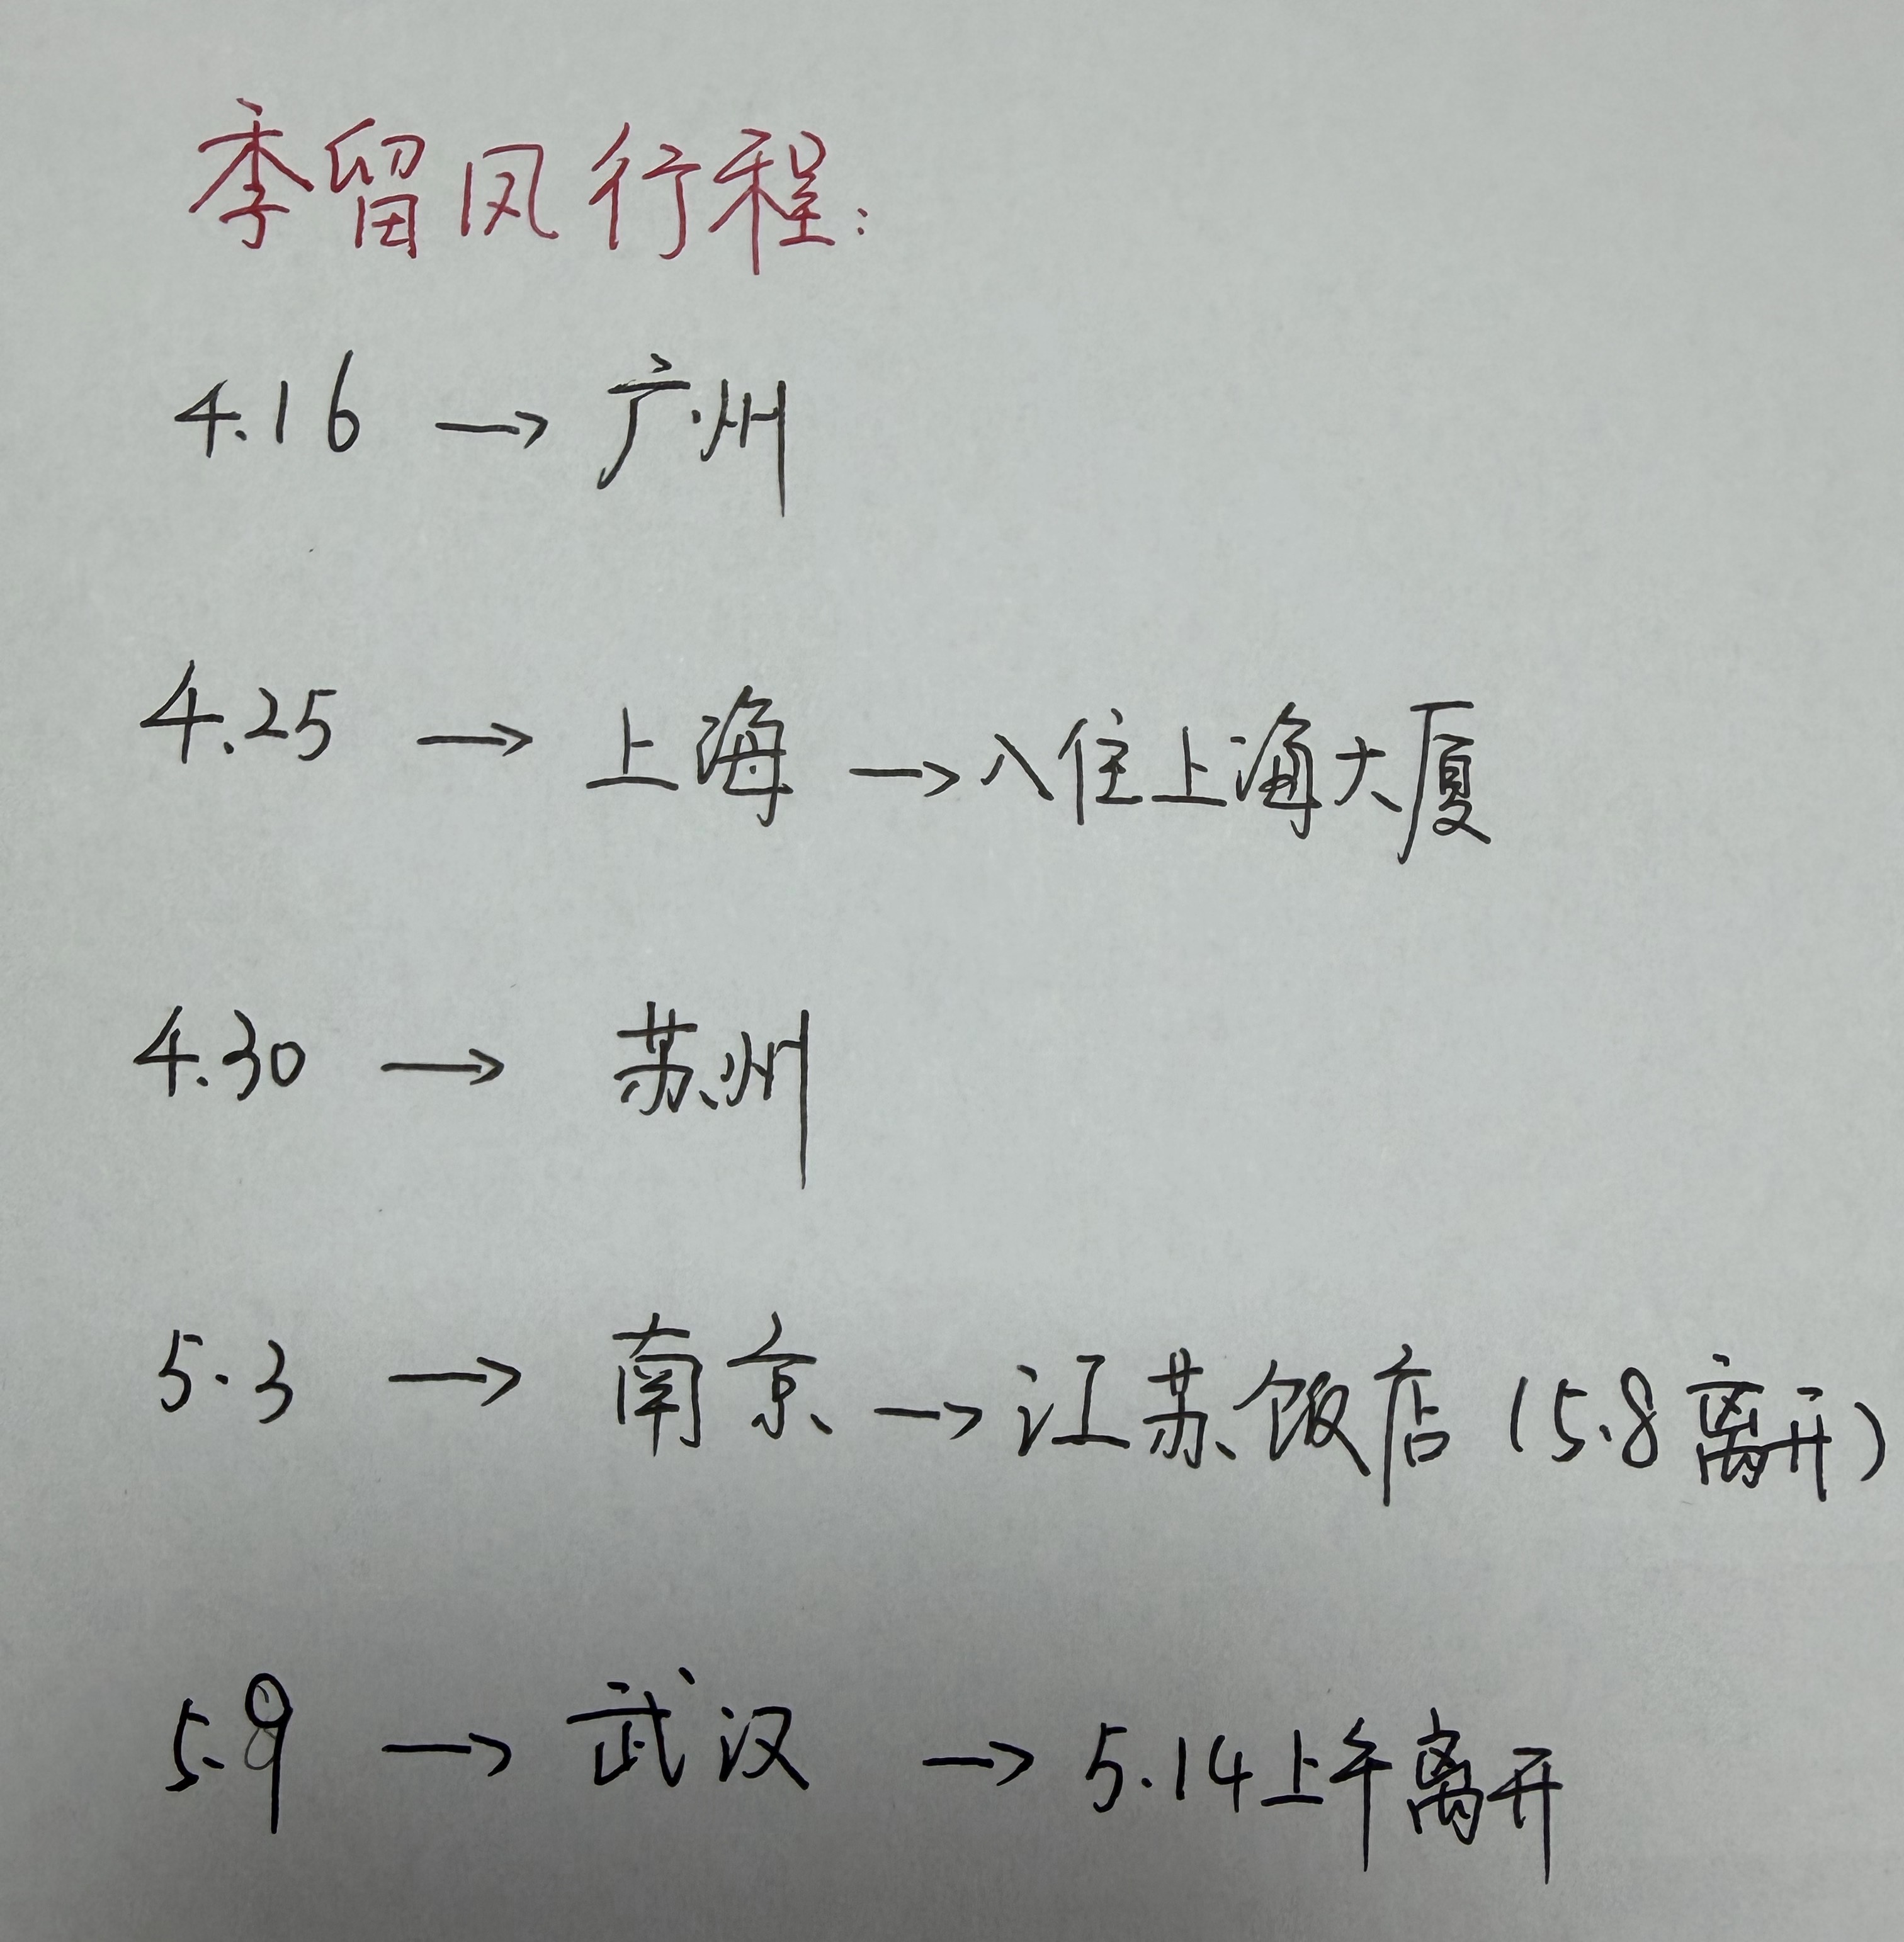 季留风行程:
4.16 → 广州
4.25 → 上海 → 入住上海大厦
4.30 → 苏州
5.3 → 南京 → 江苏饭店 (5.8离开)
5.9 → 武汉 → 5.14上午离开